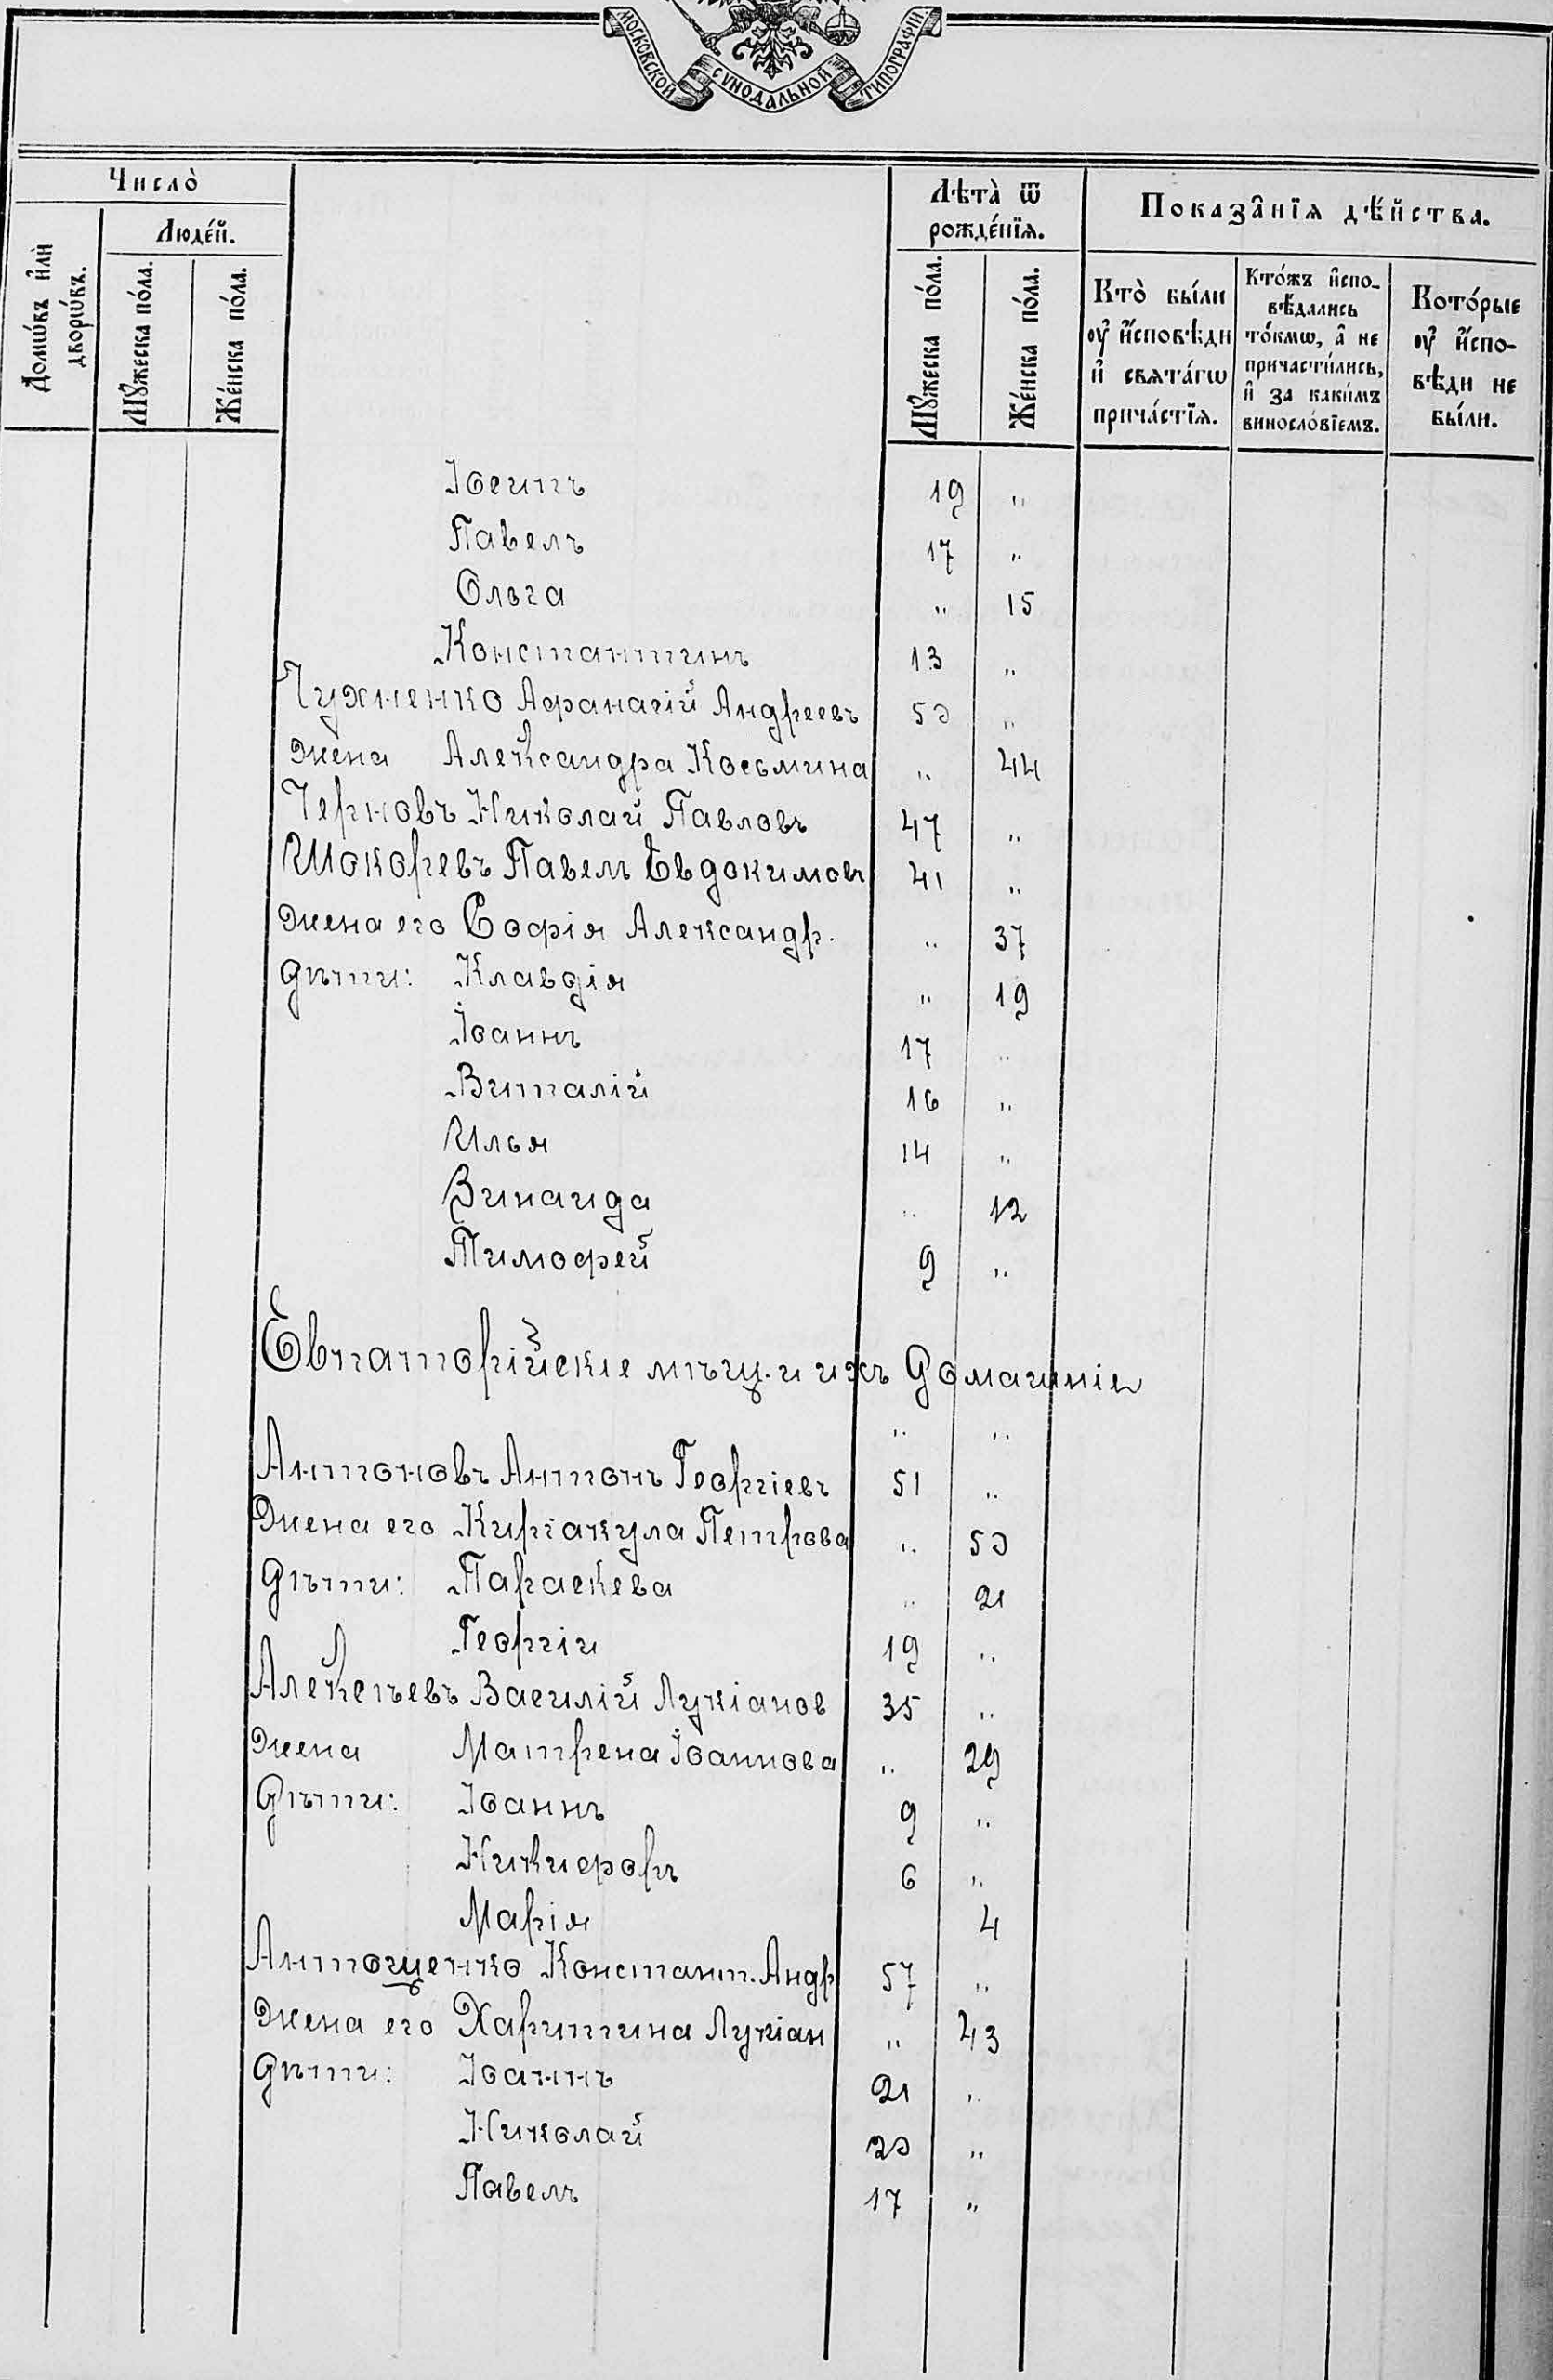 МОСКОВСКОЙ СѴНОДАЛЬНОЙ ТИПОГРАФІИ.
Число̀
Люде́й.
Домѡ́въ и҆лѝ дворѡ́въ.
Мꙋ́жеска по́ла.
Же́нска по́ла.
Лѣта̀ ѿ рожде́нїѧ.
Мꙋ́жеска по́ла.
Же́нска по́ла.
Показа̑нїѧ дѣ́йства.
Кто̀ бы́ли оу҆ и҆́сповѣди и҆ свѧта́гѡ прича́стїѧ.
Кто́жъ и҆спо-вѣ́дались то́кмѡ, а҆ не причасти́лись, и҆ за каки́мъ виносло́вїемъ.
Кото́рые оу҆ и҆́спо-вѣди не бы́ли.
Іосипъ 19 "
Павелъ 17 "
Ольга " 15
Константинъ 13 "
Чухненко Афанасій Андреевъ 50 "
жена Александра Косьмина " 44
Черновъ Николай Павловъ 47 "
Шокоревъ Павелъ Евдокимовъ 41 "
жена его Софія Александр. " 37
дѣти: Клавдія " 19
Іоаннъ 17 "
Виталій 16 "
Илья 14 "
Зинаида " 12
Тимофей 9 "
Евпаторійскіе мѣщ. и ихъ домашніе
" "
Антоновъ Антонъ Георгіевъ 51 "
Жена его Киріакула Петрова " 50
Дѣти: Параскева " 21
Георгій 19 "
Алексѣевъ Василій Лукіанов 35 "
жена Матрена Іоаннова " 29
Дѣти: Іоаннъ 9 "
Никифоръ 6 "
Марія 4
Антощенко Констант. Андр 57 "
жена его Харитина Лукіан " 43
дѣти: Іоаннъ 21 "
Николай 20 "
Павелъ 17 "